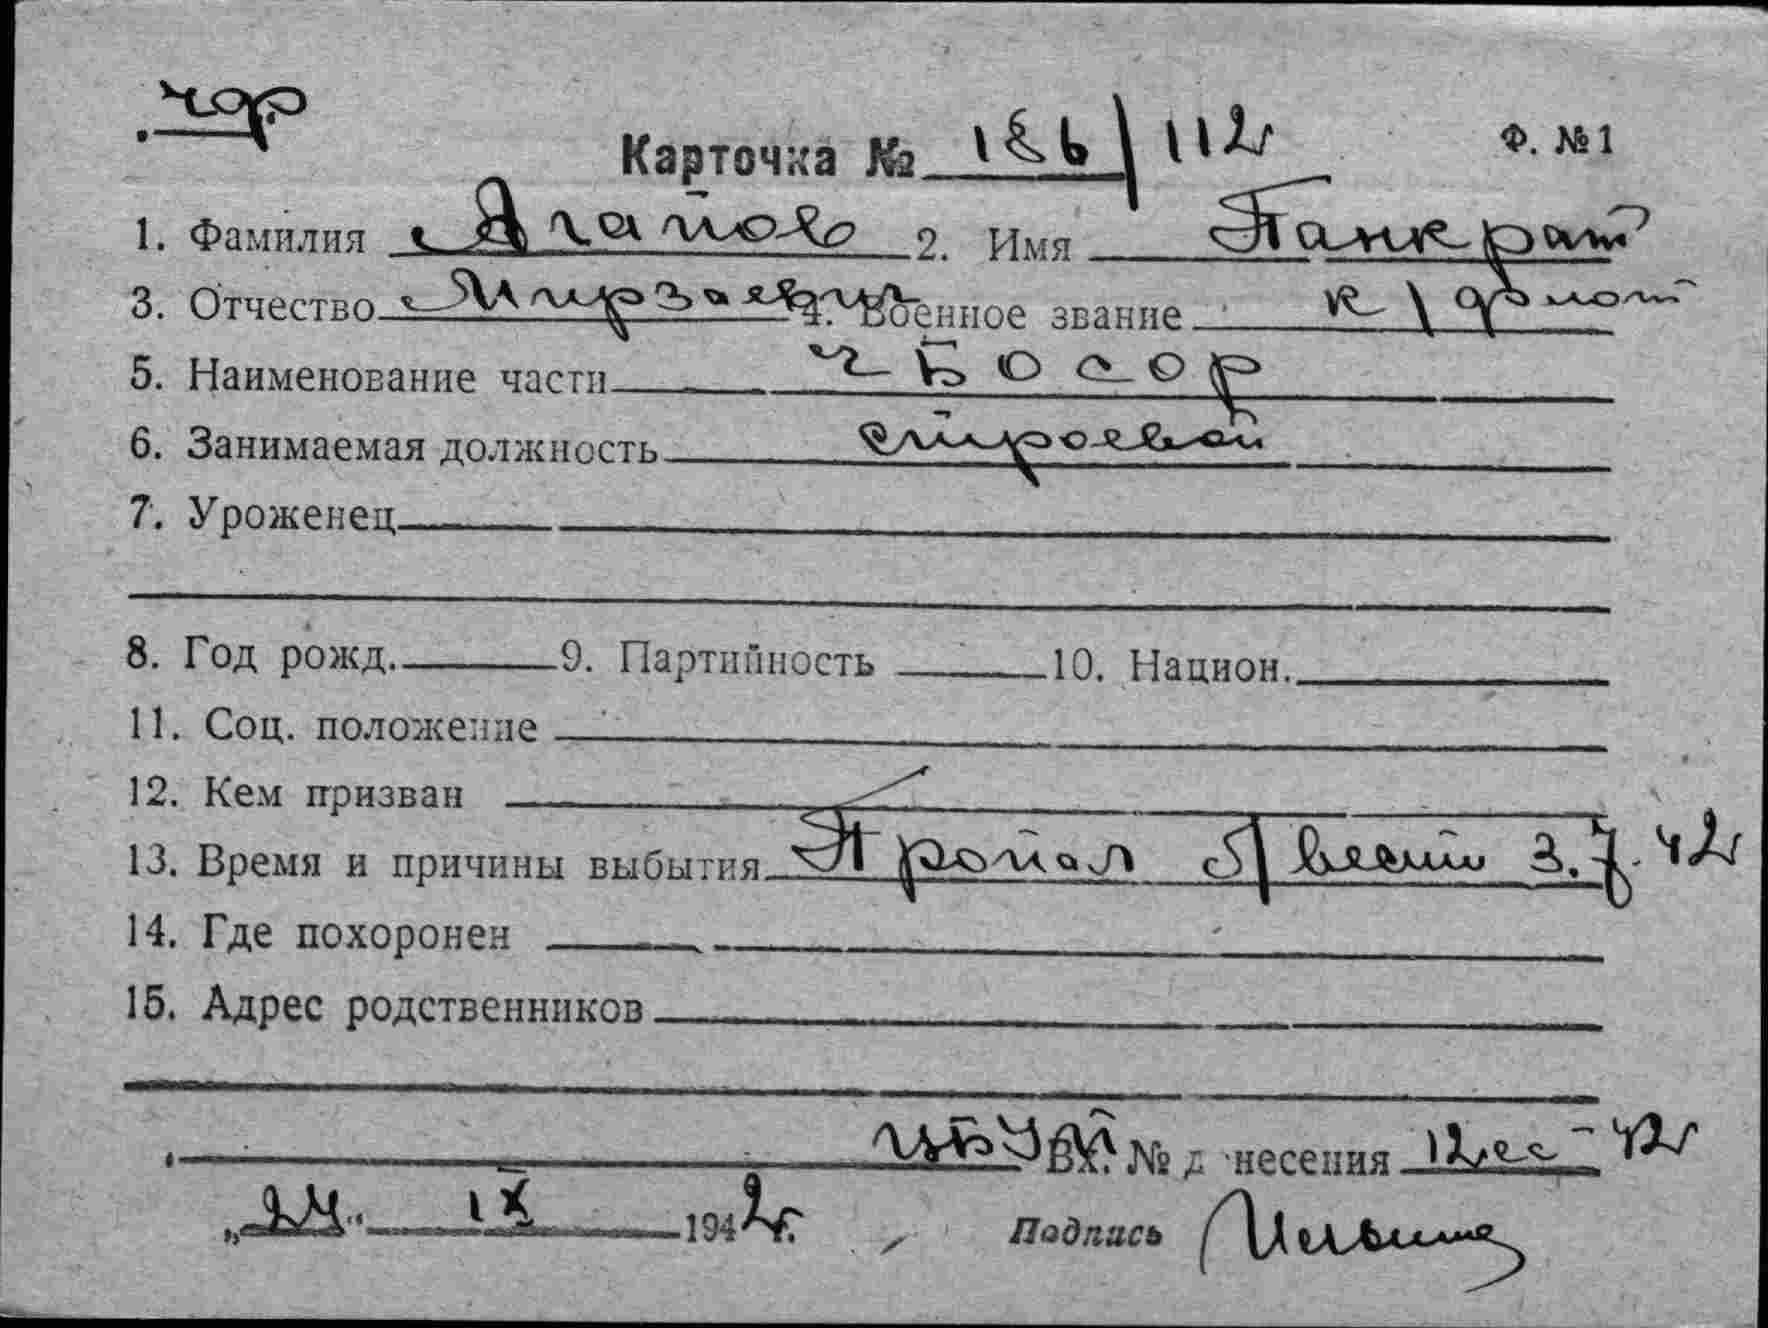 чф
Карточка № 186/112 Ф. № 1
1. Фамилия Агапов 2. Имя Панкрат
3. Отчество Мирзаевич 4. Военное звание к/флот
5. Наименование части ЧБ ОСОР
6. Занимаемая должность строевой
7. Уроженец
8. Год рожд. 9. Партийность 10. Национ.
11. Соц. положение
12. Кем призван
13. Время и причины выбытия Пропал б/вести 3.7.42
14. Где похоронен
15. Адрес родственников
Вх. № донесения 42г
„24“ IX 1942г.
Подпись